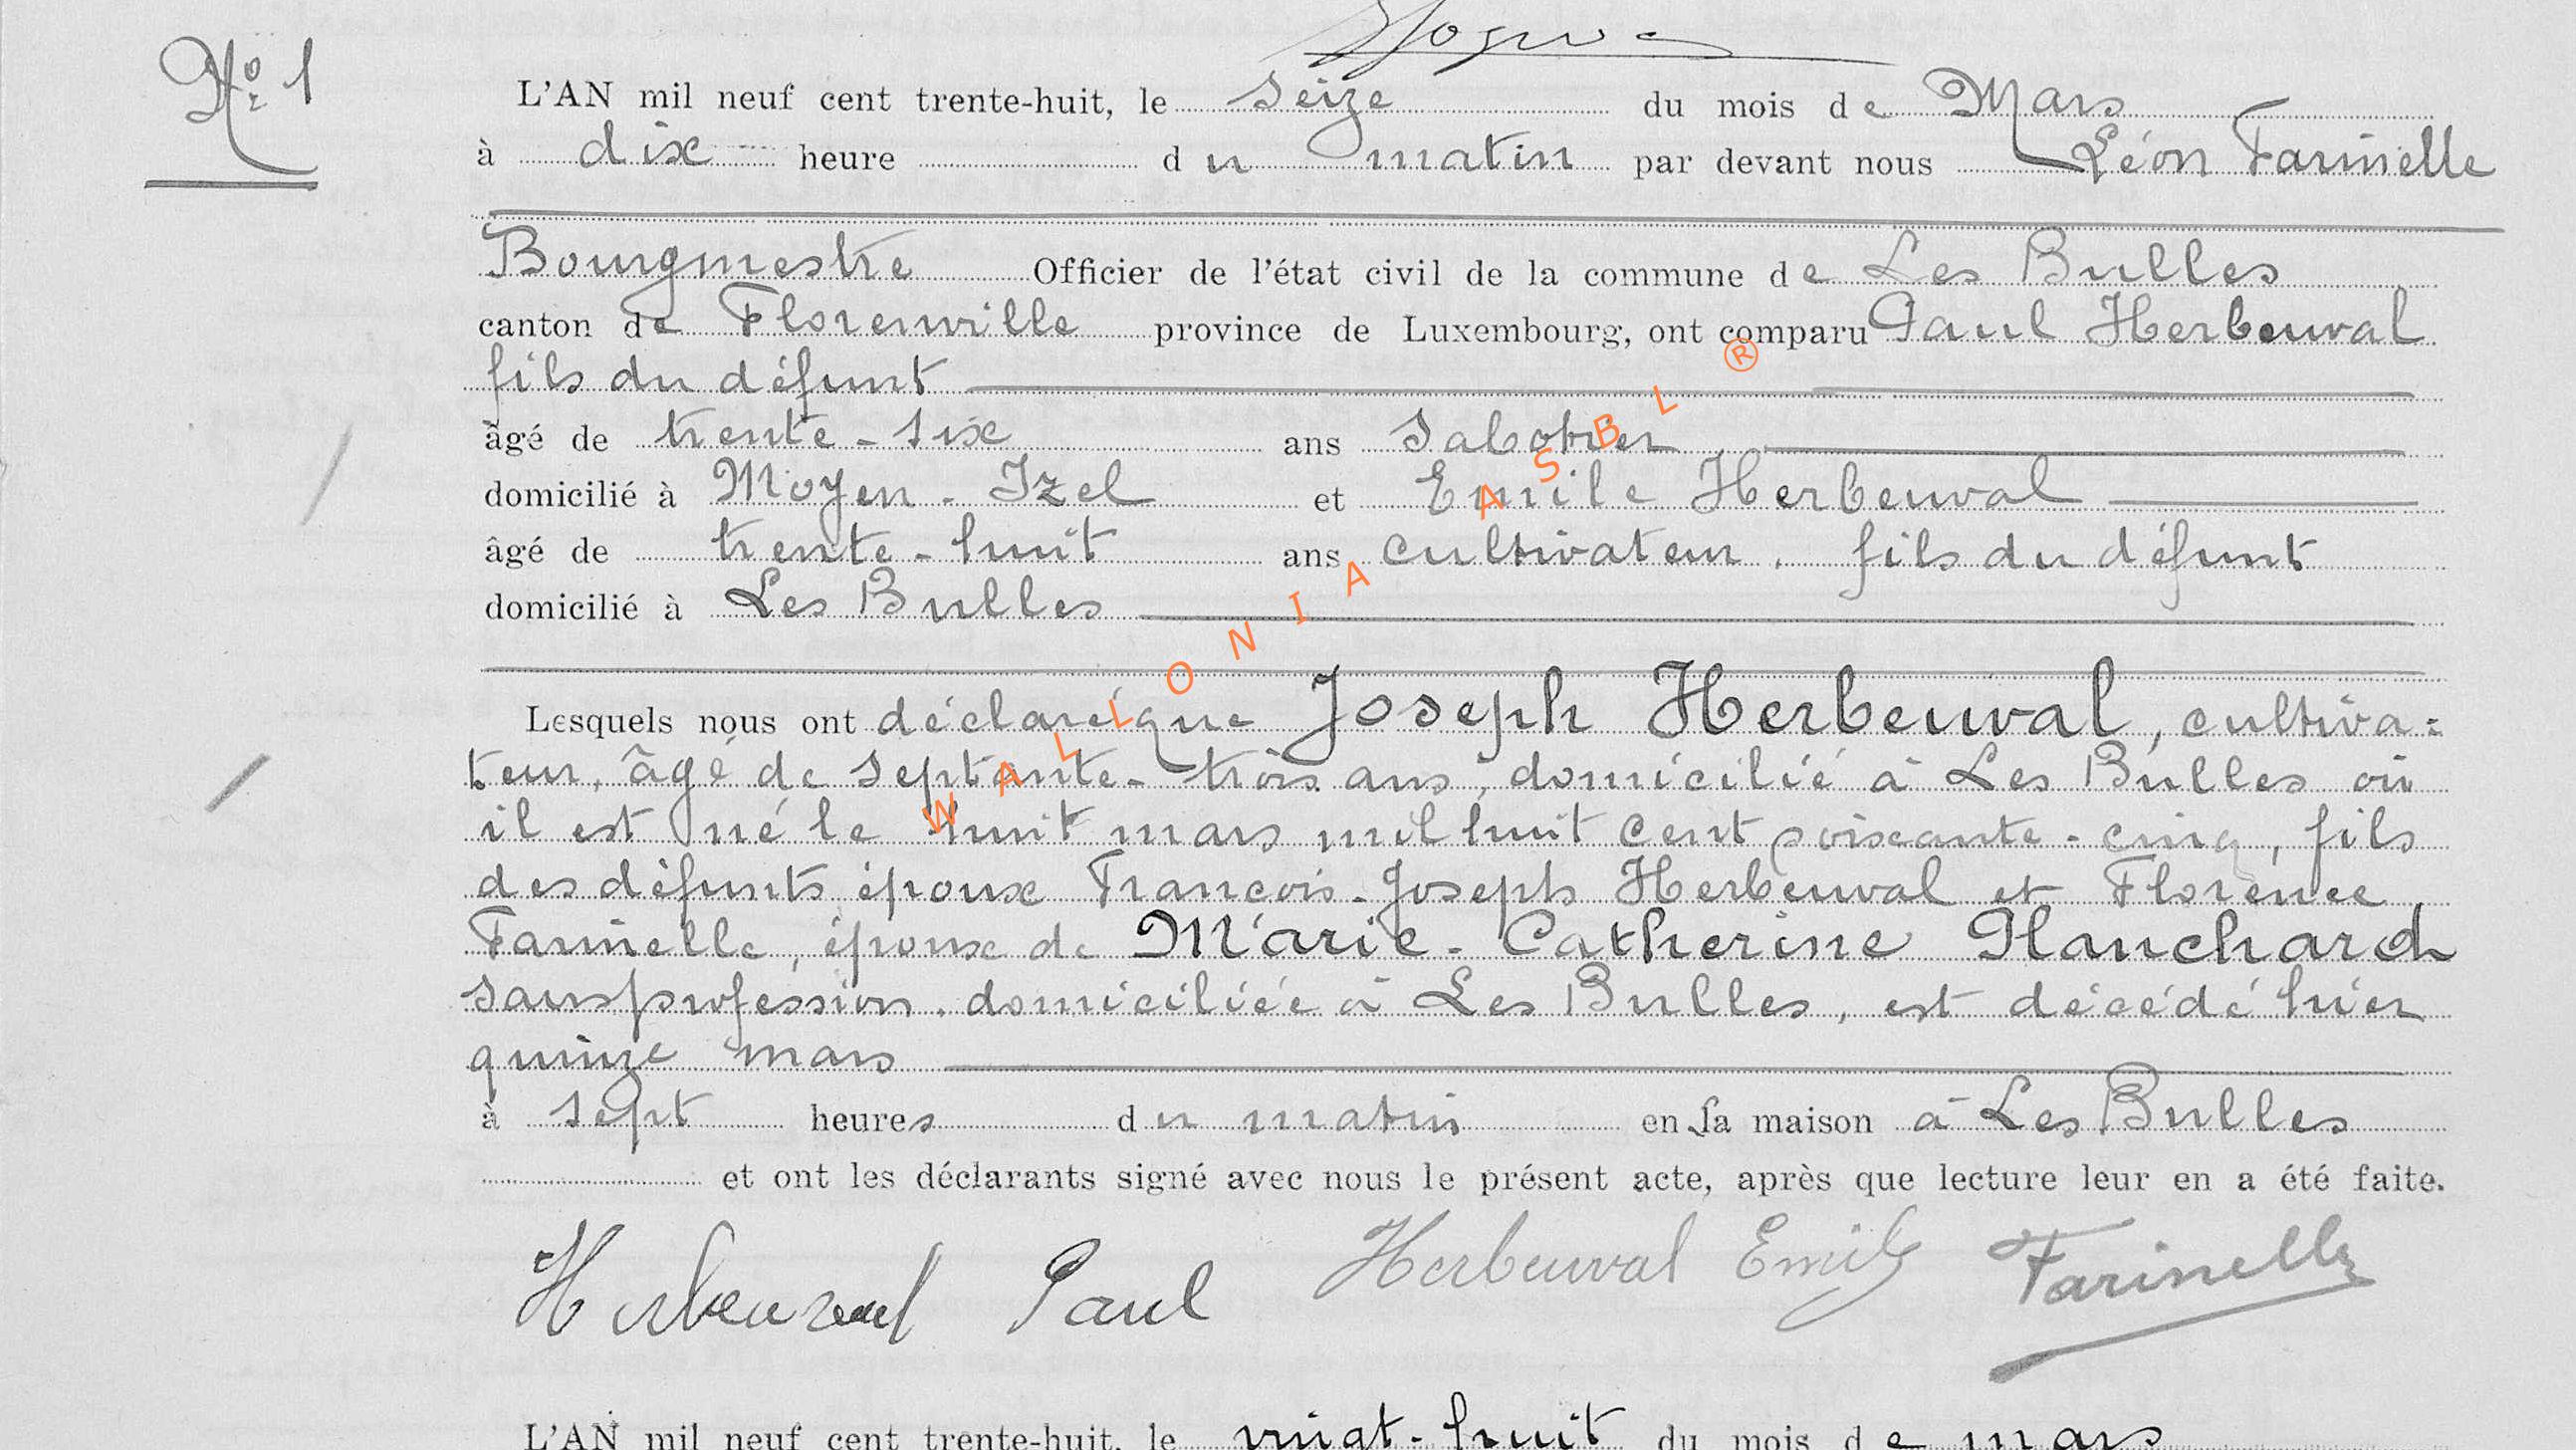 No 1
L'AN mil neuf cent trente-huit, le seize du mois de Mars
à dix heure du matin par devant nous Léon Farinelle
Bourgmestre Officier de l'état civil de la commune de Les Bulles
canton de Florenville province de Luxembourg, ont comparu Paul Herbeuval
fils du défunt
âgé de trente-six ans sabotier
domicilié à Moyen-Izel et Emile Herbeuval
âgé de trente-huit ans cultivateur, fils du défunt
domicilié à Les Bulles
Lesquels nous ont déclaré que Joseph Herbeuval, cultiva=
teur, âgé de septante-trois ans, domicilié à Les Bulles où
il est né le huit mars mil huit cent soixante-cinq, fils
des défunts époux François-Joseph Herbeuval et Florence
Farinelle, époux de Marie-Catherine Planchard
sans profession, domiciliée à Les Bulles, est décédé hier
quinze mars
à sept heures du matin en sa maison à Les Bulles
et ont les déclarants signé avec nous le présent acte, après que lecture leur en a été faite.
Herbeuval Paul Herbeuval Emile Farinelle
L'AN mil neuf cent trente-huit, le vingt-huit du mois de mars
WALLONIA ASBL ®